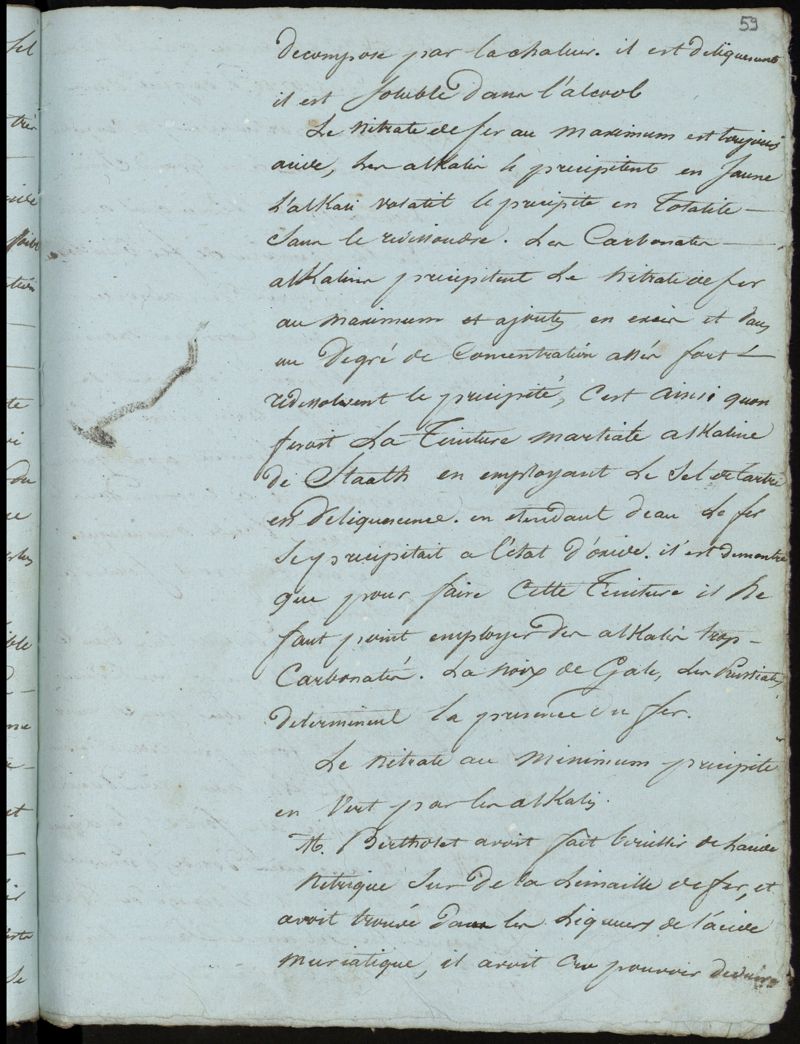 59
decompose par la chaleur. il est deliquescent
il est soluble dans l'alcool
Le nitrate de fer au maximum est toujours
acide, les alkalis le precipitent en Jaune
L'alkali volatil le precipite en Totalité —
sans le redissoudre. Les Carbonates —
alkalins precipitent Le nitrate de fer
au maximum et ajoutés en excès et dans
un Degré de Concentration assés fort —
redissolvent le precipité, c'est ainsi quon
feroit La Teinture martiale alkaline
de Staalh en employant Le Sel de tartre
en deliquescence. en etendant deau Le fer
se precipitait a l'état d'oxide. il est demontré
que pour faire Cette Teinture il ne
faut point employer des alkalis trop —
Carbonatés. La noix de Gale, Les Prussiates
determinent la presence du fer.
Le nitrate au minimum precipite
en Vert par les alkalis.
M. Bertholet avoit fait bouillir de Lacide
Nitrique Sur De la Limaille de fer, et
avoit trouvé dans les Liqueurs de l'acide
muriatique, il avoit Cru pouvoir deduire
sel
très
acide
te
du
ble
et
Se